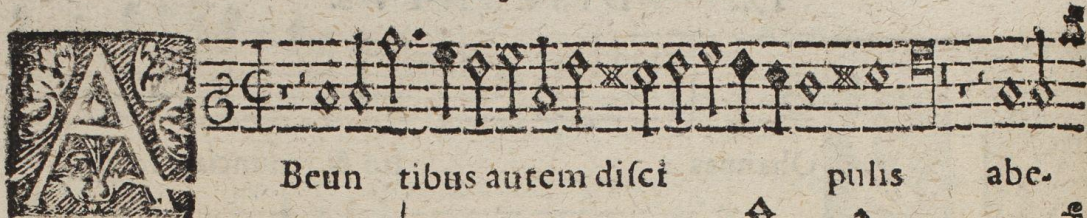 ABeun tibus autem diſci pulis abe-